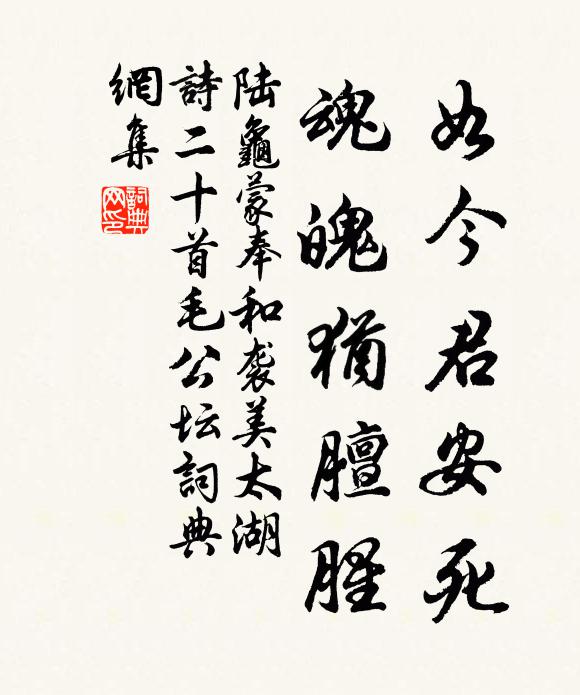 如今君安死
魂魄猶膻腥
陆龜蒙奉和袭美太湖
詩二十首毛公坛詞典
網集
詞典网印